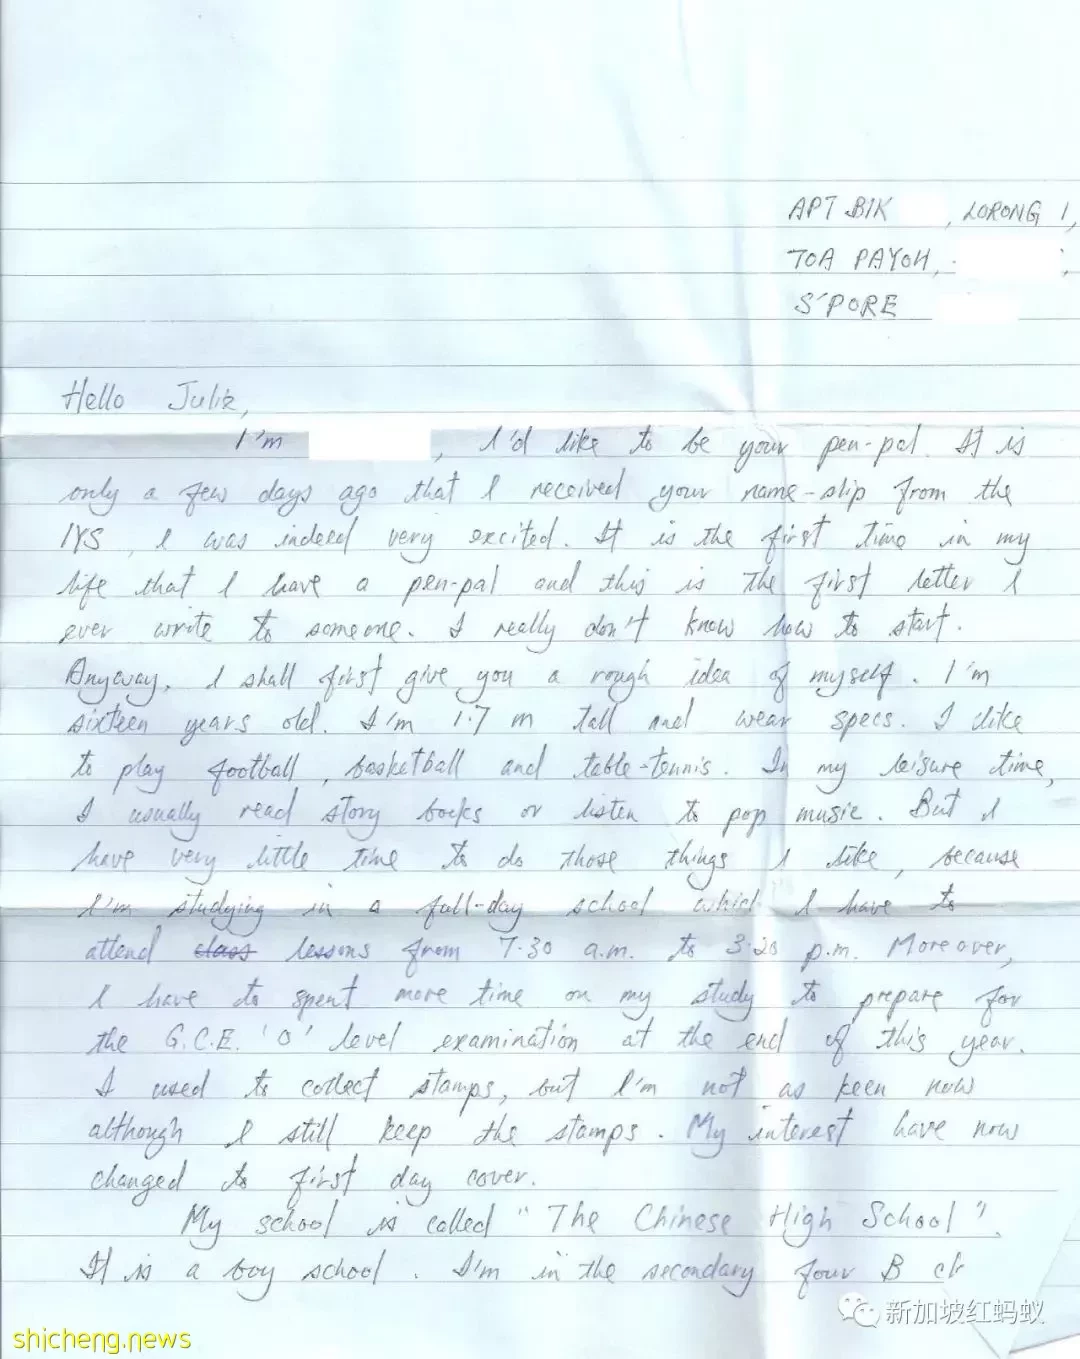 APT BlK , LORONG 1,
TOA PAYOH, ,
S'PORE
Hello Julie,
I'm , I'd like to be your pen-pal. It is
only a few days ago that I received your name-slip from the
IYS, I was indeed very excited. It is the first time in my
life that I have a pen-pal and this is the first letter I
ever write to someone. I really don't know how to start.
Anyway, I shall first give you a rough idea of myself. I'm
sixteen years old. I'm 1.7 m tall and wear specs. I like
to play football, basketball and table-tennis. In my leisure time,
I usually read story books or listen to pop music. But I
have very little time to do those things I like, because
I'm studying in a full-day school which I have to
attend class lessons from 7.30 a.m. to 3.20 p.m. Moreover,
I have to spent more time on my study to prepare for
the G.C.E. 'O' level examination at the end of this year.
I used to collect stamps, but I'm not as keen now
although I still keep the stamps. My interest have now
changed to first day cover.
My school is called "The Chinese High School".
It is a boy school. I'm in the secondary four B
新加坡红蚂蚁
shicheng.news